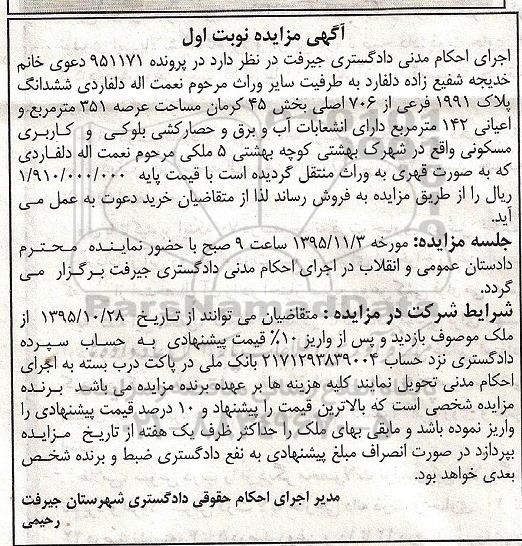 آگهی مزایده نوبت اول
اجرای احکام مدنی دادگستری جیرفت در نظر دارد در پرونده ۹۵۱۱۷۱ دعوی خانم
خدیجه شفیع زاده دلفارد به طرفیت سایر وراث مرحوم نعمت اله دلفاردی ششدانگ
پلاک ۱۹۹۱ فرعی از ۷۰۶ اصلی بخش ۴۵ کرمان مساحت عرصه ۳۵۱ مترمربع و
اعیانی ۱۴۲ مترمربع دارای انشعابات آب و برق و حصارکشی بلوکی و کاربری
مسکونی واقع در شهرک بهشتی کوچه بهشتی ۵ ملکی مرحوم نعمت اله دلفاردی
که به صورت قهری به وراث منتقل گردیده است با قیمت پایه ۱/۹۱۰/۰۰۰/۰۰۰
ریال را از طریق مزایده به فروش رساند لذا از متقاضیان خرید دعوت به عمل می
آید.
جلسه مزایده: مورخه ۱۳۹۵/۱۱/۳ ساعت ۹ صبح با حضور نماینده محترم
دادستان عمومی و انقلاب در اجرای احکام مدنی دادگستری جیرفت برگزار می
گردد.
شرایط شرکت در مزایده : متقاضیان می توانند از تاریخ ۱۳۹۵/۱۰/۲۸ از
ملک موصوف بازدید و پس از واریز ۱۰٪ قیمت پیشنهادی به حساب سپرده
دادگستری نزد حساب ۲۱۷۱۲۹۳۸۳۹۰۰۴ بانک ملی در پاکت درب بسته به اجرای
احکام مدنی تحویل نمایند کلیه هزینه ها بر عهده برنده مزایده می باشد برنده
مزایده شخصی است که بالاترین قیمت را پیشنهاد و ۱۰ درصد قیمت پیشنهادی را
واریز نموده باشد و مابقی بهای ملک را حداکثر ظرف یک هفته از تاریخ مزایده
بپردازد در صورت انصراف مبلغ پیشنهادی به نفع دادگستری ضبط و برنده شخص
بعدی خواهد بود.
مدیر اجرای احکام حقوقی دادگستری شهرستان جیرفت
رحیمی
ParsNamadData